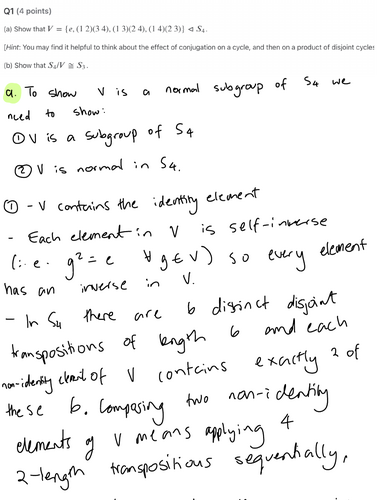 Q1 (4 points)
(a) Show that V = {e, (1 2)(3 4), (1 3)(2 4), (1 4)(2 3)} ⊲ S₄.
[Hint: You may find it helpful to think about the effect of conjugation on a cycle, and then on a product of disjoint cycles
(b) Show that S₄/V ≅ S₃.
a. To show V is a normal subgroup of S4 we
need to show:
① V is a subgroup of S4
② V is normal in S4.
① - V contains the identity element
- Each element in V is self-inverse
(i.e. g² = e ∀ g ∈ V) so every element
has an inverse in V.
- In S4 there are 6 distinct disjoint
transpositions of length 6 and each
non-identity element of V contains exactly 2 of
these 6. Composing two non-identity
elements of V means applying 4
2-length transpositions sequentially,